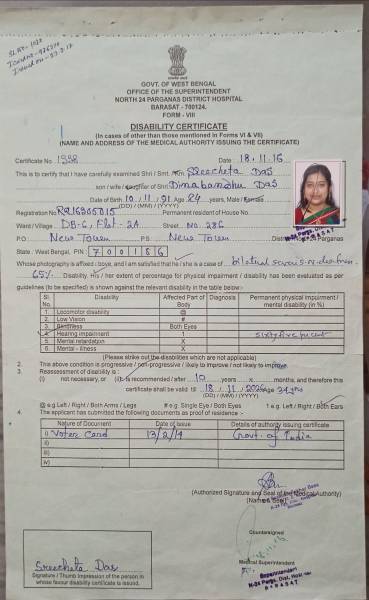 GOVT. OF WEST BENGAL
OFFICE OF THE SUPERINTENDENT
NORTH 24 PARGANAS DISTRICT HOSPITAL
BARASAT - 700124.
FORM - VIII
DISABILITY CERTIFICATE
(In cases of other than those mentioned in Forms VI & VII)
(NAME AND ADDRESS OF THE MEDICAL AUTHORITY ISSUING THE CERTIFICATE)
Certificate No. 1388 Date : 18.11.16
This is to certify that I have carefully examined Shri / Smt. / Km Sreecheta Das
son / wife / daughter of Shri Dinabandhu Das
Date of Birth 10.11.91 Age 24 years, Male / Female
(DD) / (MM) / (YYYY)
Registration No RR16905015 Permanent resident of House No.
Ward / Village DB-6, Flat-2A Street No. 286
P.O. New Town P.S. New Town District Parganas
State : West Bengal, PIN 700156
Whose photography is affixed above, and I am satisfied that he / she is a case of bilateral
65% Disability. His / her extent of percentage for physical impairment / disability has been evaluated as per
guidelines (to be specified) is shown against the relevant disability in the table below:-
Sl. No. Disability Affected Part of Body Diagnosis Permanent physical impairment / mental disability (in %)
1. Locomotor disability @
2. Low Vision #
3. Blindness Both Eyes
4. Hearing impairment 1 sixty five percent
5. Mental retardation X
6. Mental - illness X
(Please strike out the disabilities which are not applicable)
2. This above condition is progressive / non-progressive / likely to improve / not likely to improve.
3. Reassessment of disability is :
(i) not necessary, or (ii) is recommended / after 10 years x months, and therefore this
certificate shall be valid till 18.11.2026 Age 34 yrs
(DD) / (MM) / (YYYY)
@ e.g Left / Right / Both Arms / Legs # e.g. Single Eye / Both Eyes 1 e.g. Left / Right / Both Ears
4. The applicant has submitted the following documents as proof of residence :-
Nature of Document Date of Issue Details of authority issuing certificate
i) Voter Card 13/2/14 Govt. of India
ii)
iii)
iv)
(Authorized Signature and Seal of the Medical Authority)
Countersigned
Medical Superintendent
Superintendent
N-24 Pargs. Dist. Hospital
BARASAT
Sreecheta Das
Signature / Thumb impression of the person in
whose favour disability certificate is issued.